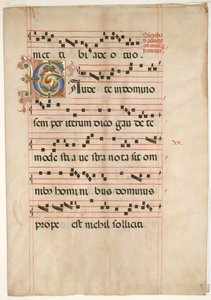 niet ti bi a deo tuo.
aude te in domino
sem per iterum dico gau de te
mode sti a ve stra no ta sit om
nibus homini bus dominus
prope est nichil solliciti